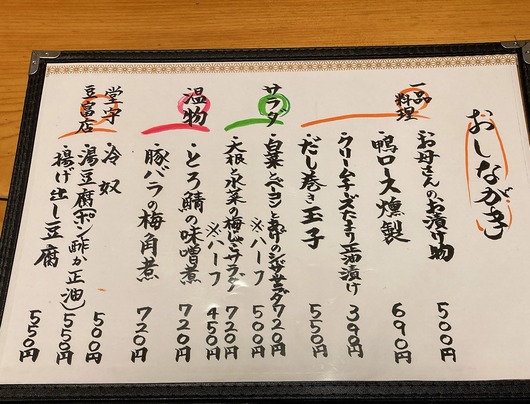 おしながき
一品料理
・お母さんのお漬け物 500円
・鴨ロース燻製 690円
・クリームチーズたまり正油漬け 390円
・だし巻き玉子 550円
サラダ
・白菜とベーコンと卵のシーザーサラダ 720円
※ハーフ 500円
・大根と水菜の梅じゃこサラダ 720円
※ハーフ 450円
温物
・とろ鯖の味噌煮 720円
・豚バラの梅角煮 720円
豆富店
・冷奴 500円
・湯豆腐(ポン酢か正油) 550円
・揚げ出し豆腐 550円